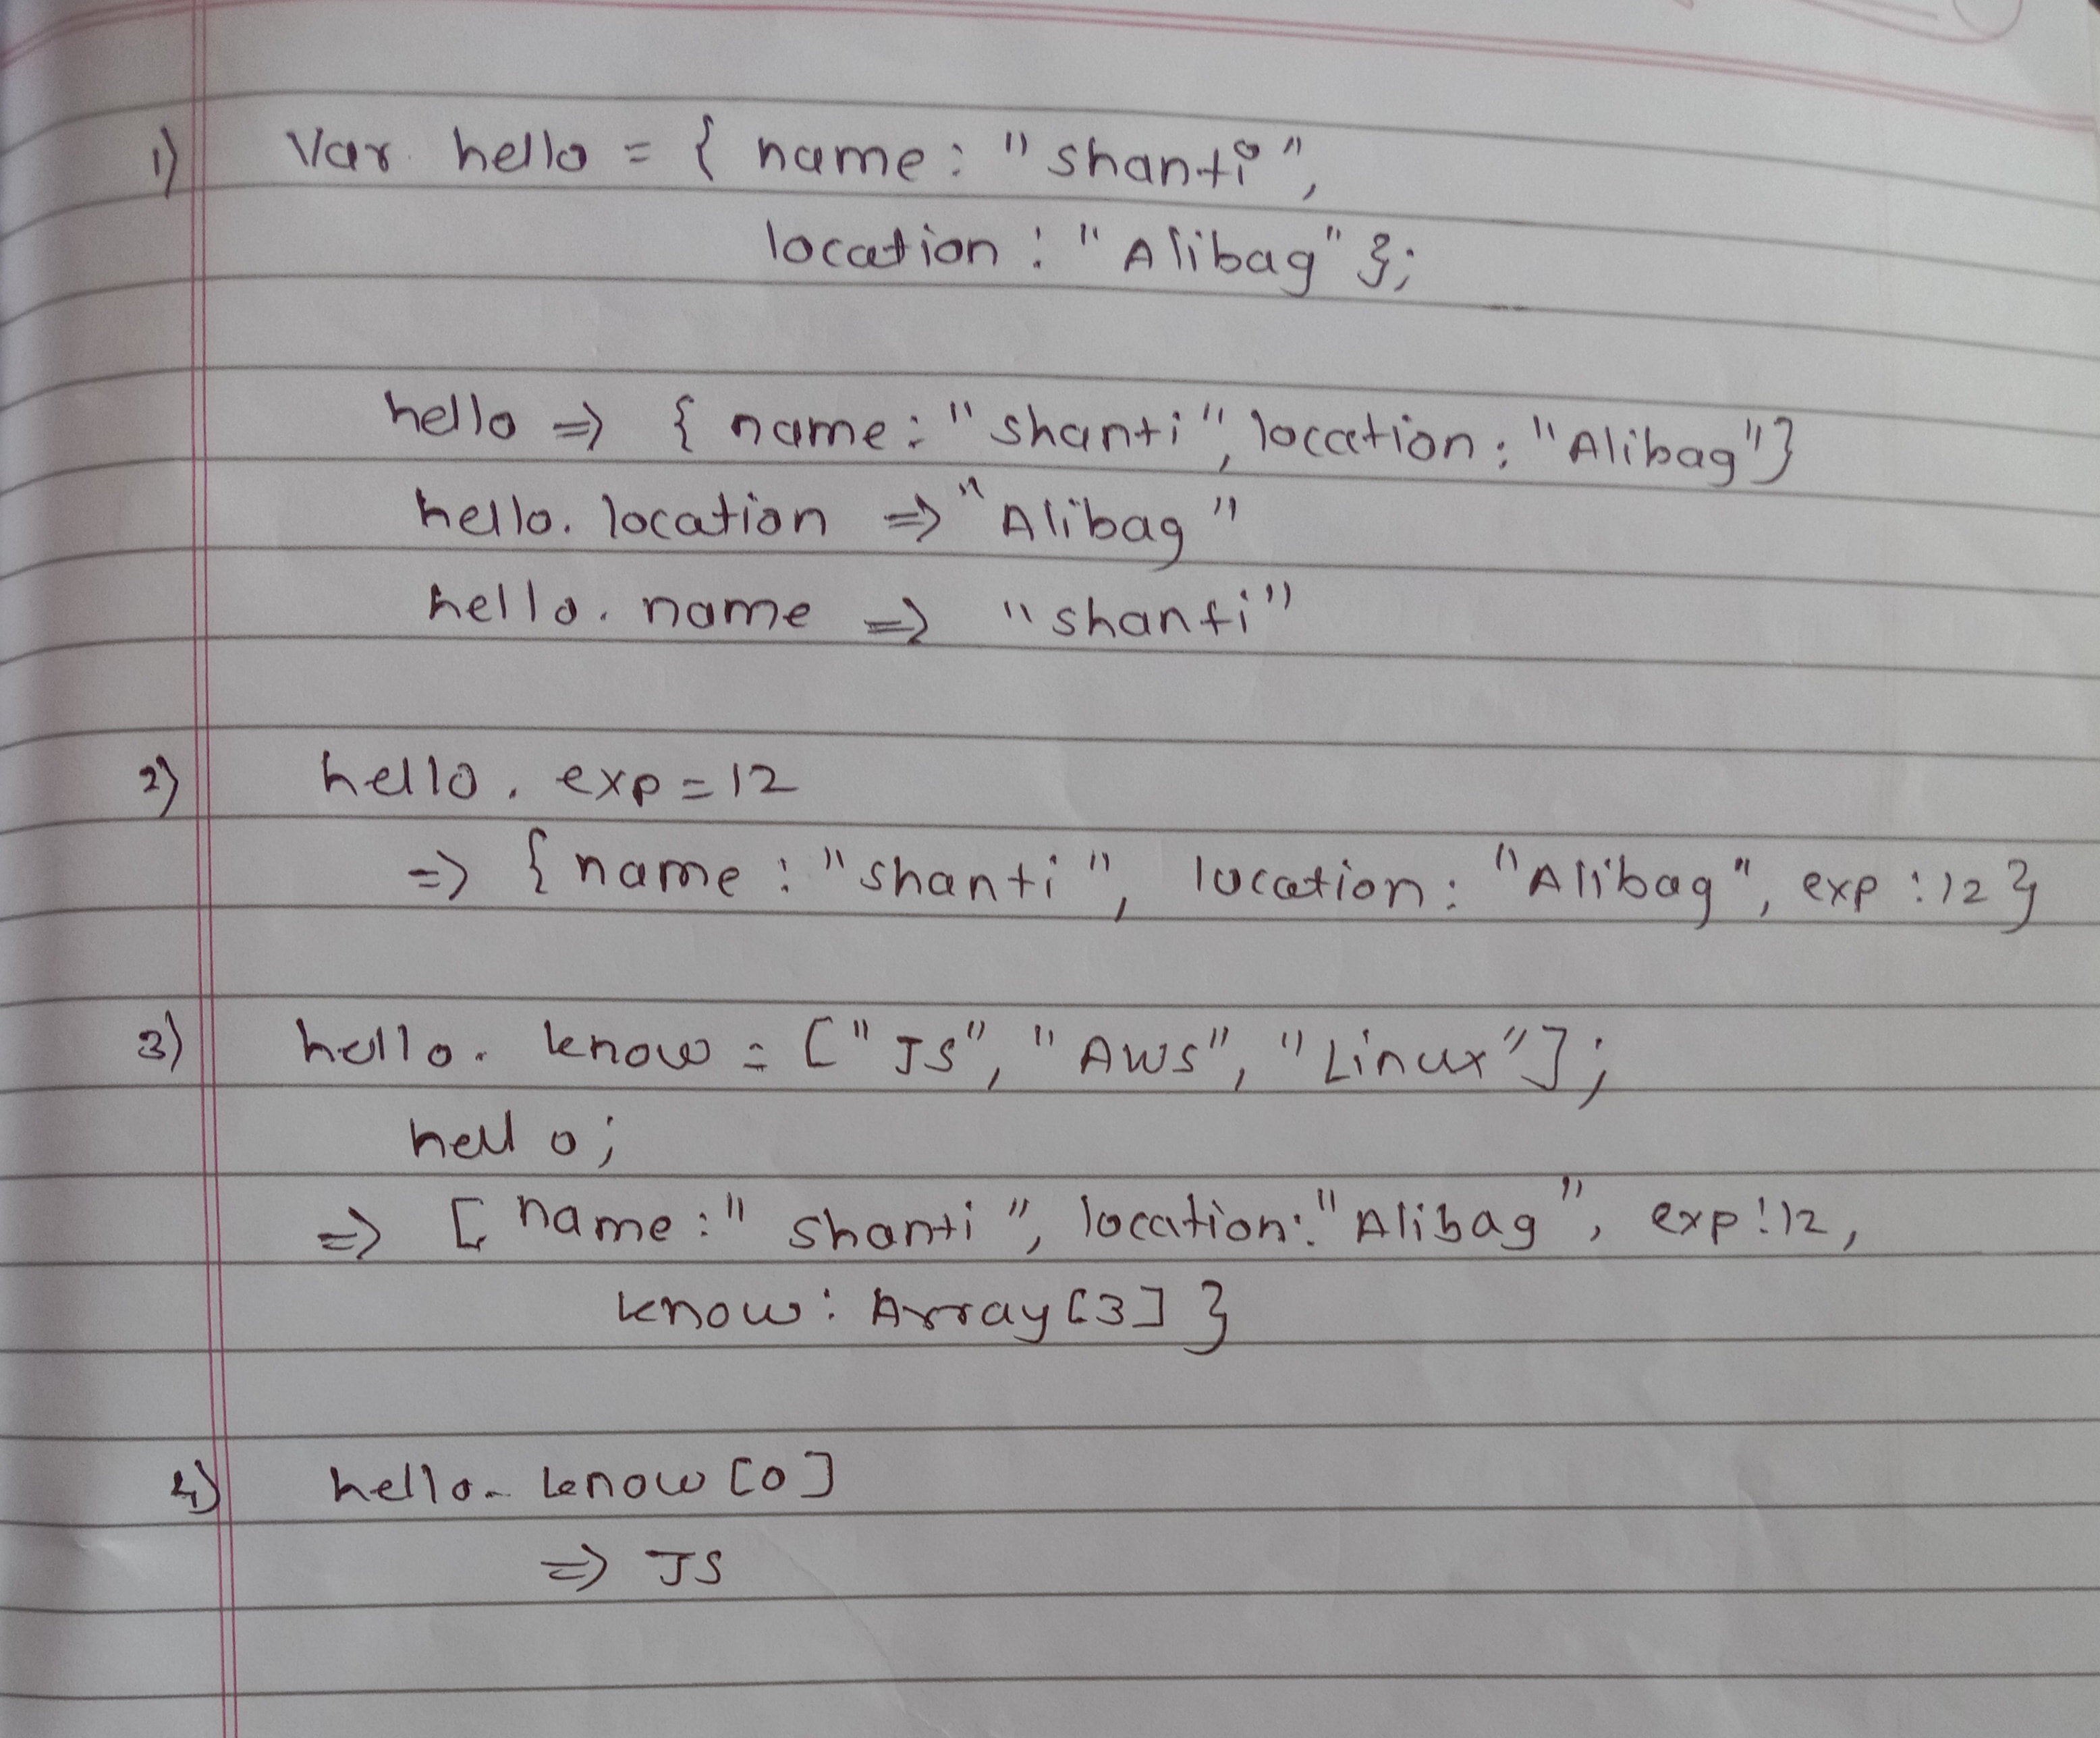 1) Var hello = { name : "shanti",
location : "Alibag" };
hello => { name : "shanti", location : "Alibag"}
hello. location => "Alibag"
hello. name => "shanti"
2) hello. exp = 12
=> { name : "shanti", location : "Alibag", exp : 12 }
3) hello. know = ["JS", "AWS", "Linux"];
hello;
=> [ name : "shanti", location : "Alibag", exp : 12,
know : Array [3] }
4) hello. know [0]
=> JS